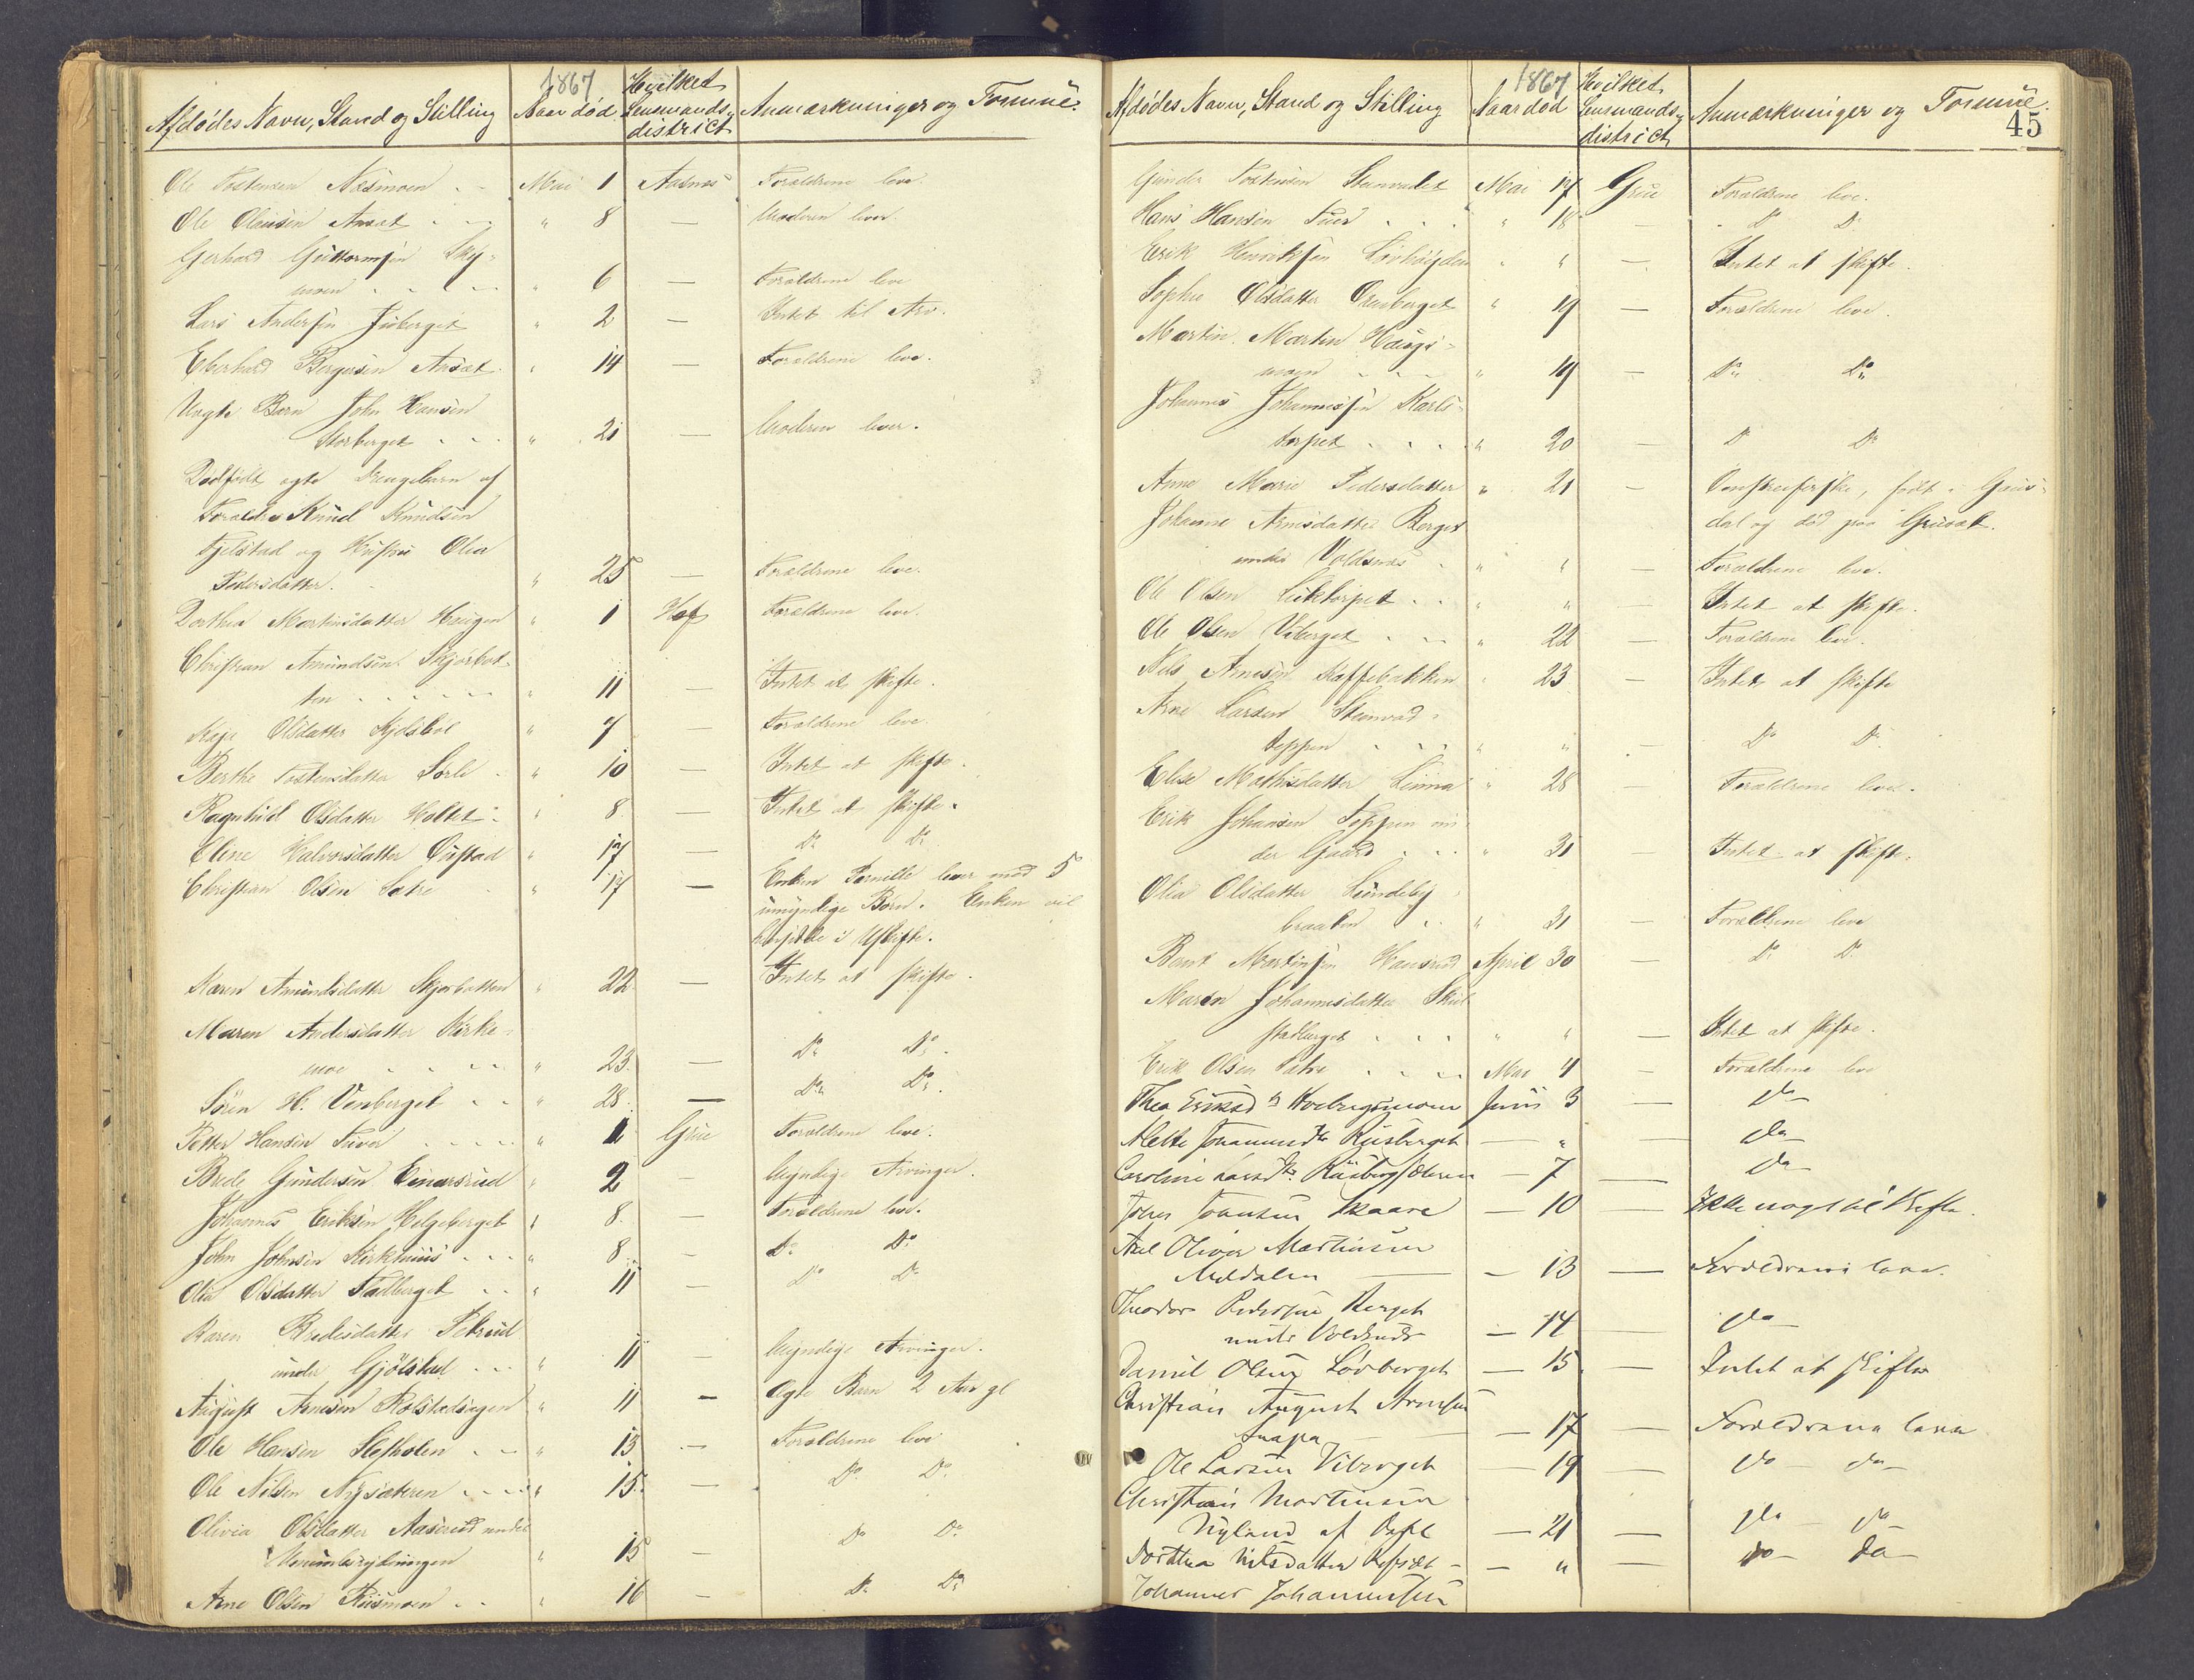 1867
Afdødes Navn, Stand og Stilling Naar død. Hvilket Lensmands-district Anmærkninger og Formue.
Ole Tostensen Næsmoen Mai 1 Aasnes Forældrene leve.
Ole Olausen Arset " 8 — Moderen lever.
Gerhard Guttormsen Sky-
moen " 6 — Forældrene leve
Lars Andersen Juberget " 2 — Intet til Arv.
Eberhard Bergersen Arset " 14 — Forældrene leve.
Uægte Barn John Hansen
Storberget " 21 — Moderen lever.
Dødfødt ægte Drengebarn af
Forældre Knud Knudsen
Fjelstad og Hustru Olea
Pedersdatter. " 25 — Forældrene leve.
Dorthea Martinsdatter Haugen " 1 Hof Forældrene leve.
Christian Amundsen Skjærbot-
ten " 11 — Intet at skifte.
Olsdatter " 7 — Forældrene leve.
Berthe Tostensdatter Sorli " 10 — Intet at skifte.
Ragnhild Olsdatter Holtet " 8 — Intet at skifte.
Eline Halvorsdatter Opstad " 17 — Do Do
Christian Olsen Sætre " 17 — Enken Pernille lever med 5
umyndige Børn. Enken vil
hensidde i Uskifte.
Maren Amundsdatter Skjærbotten " 22 — Intet at skifte.
Maren Andersdatter Kirke-
moe " 23. — Do Do.
Søren H. Venberget " 28. — Do Do.
Petter Hansen Tuer " 1 Grue Forældrene leve.
Brede Gundersen Einarsrud " 2 — Myndige Arvinger.
Johannes Eriksen Helgeberget " 8. — Forældrene leve.
John Johnsen Kirkhuus " 8 — Do Do
Olea Olsdatter Fladberget " 11 — Do Do
Karen Bredesdatter
under Gjølstad " 11 — Myndige Arvinger.
August Arnesen Rolstadengen " 11 — ægte Barn 2 Aar gl
Ole Hansen " 13 — Forældrene leve
Ole Nilsen Nysæteren " 15. — Do Do.
Olivia Olsdatter Aaserud under
" 15 — Do Do
Arne Olsen Riismoen " 16 — Do Do
1867
45
Afdødes Navn, Stand og Stilling Naar død Hvilket Lensmands-district Anmærkninger og Formue.
Gunder Tostensen Mai 17 Grue Forældrene leve.
Hans Hansen Tuer " 18 — Do Do
Erik Henriksen Løvhøigden " " — Intet at skifte.
Sophie Olsdatter Oreberget " 19 — Forældrene leve.
Martin Martin Haugs-
moen " 19 — Do Do
Johannes Johannessen Karls-
torpet " 20 — Do Do
Anne Marie Pedersdatter " 21 — Omstreiferske, født i Grue
dal og død paa
Johanne Arnesdatter Berget
under Voldsnæs " " — Forældrene leve.
Ole Olsen " " — Intet at skifte.
Ole Olsen Viberget " 22 — Forældrene leve.
Nils Arnesen Kaffebakken " 23 — Intet at skifte
Arne Larsen
Teppen " " — Do Do
Elise Mathisdatter Linna " 28 — Forældrene leve.
Erik Johansen Teppen un-
der Gaard " 31 — Intet at skifte.
Olia Olsdatter Lundeby-
braaten " 31 — Forældrene leve
Bernt Martinsen Hansrud April 30 — Do Do
Maren Johannesdatter Skul-
stadberget " " — Intet at skifte.
Erik Olsen Sætre Mai 4 — Forældrene leve
Thea Eriksd tr Juni 3 — do
Mette Johannesdtr Riisberget — " — do
Caroline Larsdtr Riisbergsæteren — 7 — do
Skaare — 10 — Ikke noget til Skifte.
Axel Oliver Martinsen
— 13 — Forældrene leve.
Theodor Pedersen Berget
under Voldsnæs — 14 — do
Daniel Olsen Løvberget — 15 — Intet at skifte
Christian August Arnesen
— 17 — Forældrene leve
Ole Larsen Viberget — 19 — do — do —
Christian Martinsen
Nyland af — 21 — do do
Dorthea Nilsdatter — " — do — do —
Johannes Johannessen